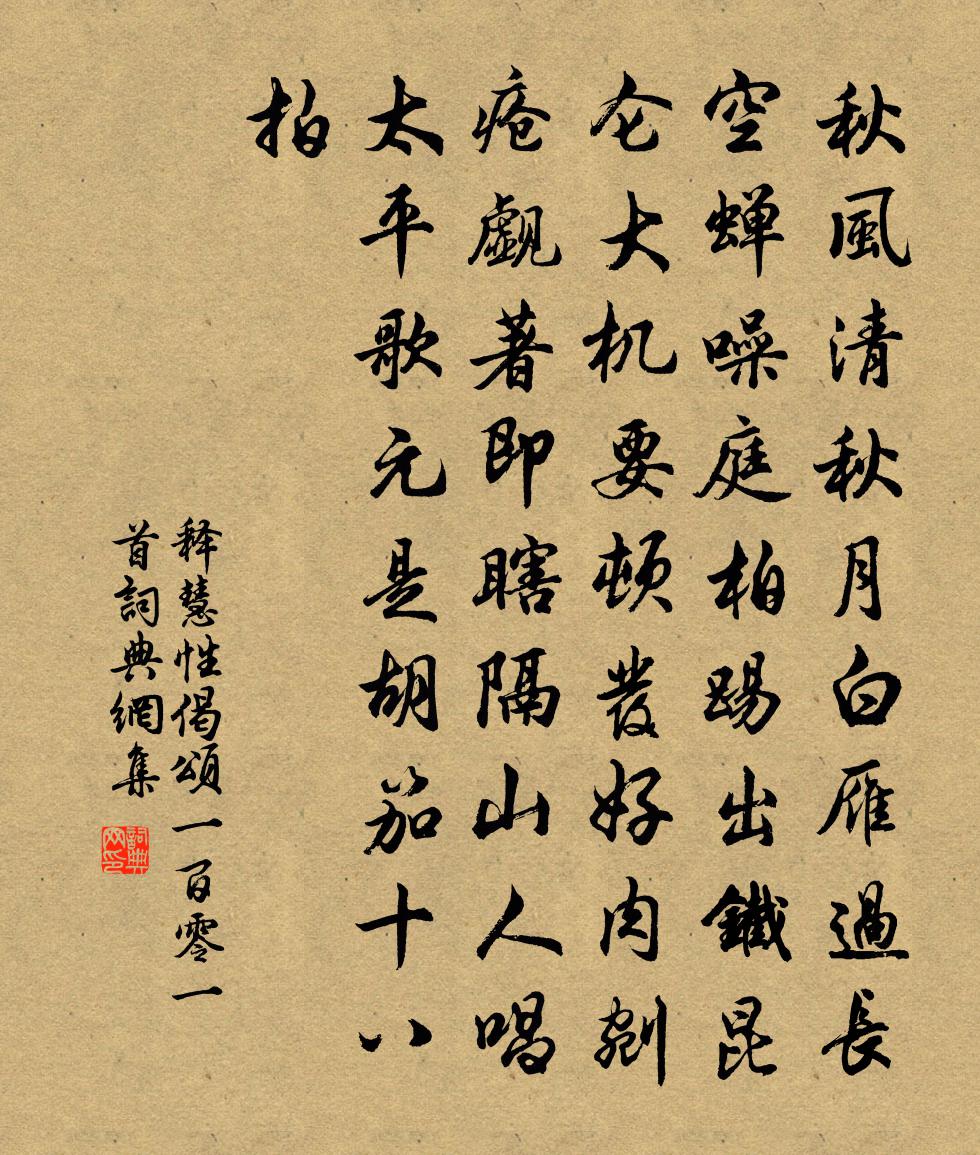 秋風清秋月白雁過長
空蝉噪庭柏踢出鐵昆
仑大机要頓發好肉剜
疮覷著即瞎隔山人唱
太平歌元是胡笳十八
拍
释慧性偈頌一百零一
首詞典網集
詞典網印